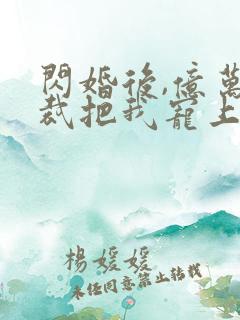 閃婚後,億萬
裁把我寵上
楊媛媛
未任同意禁止轉載